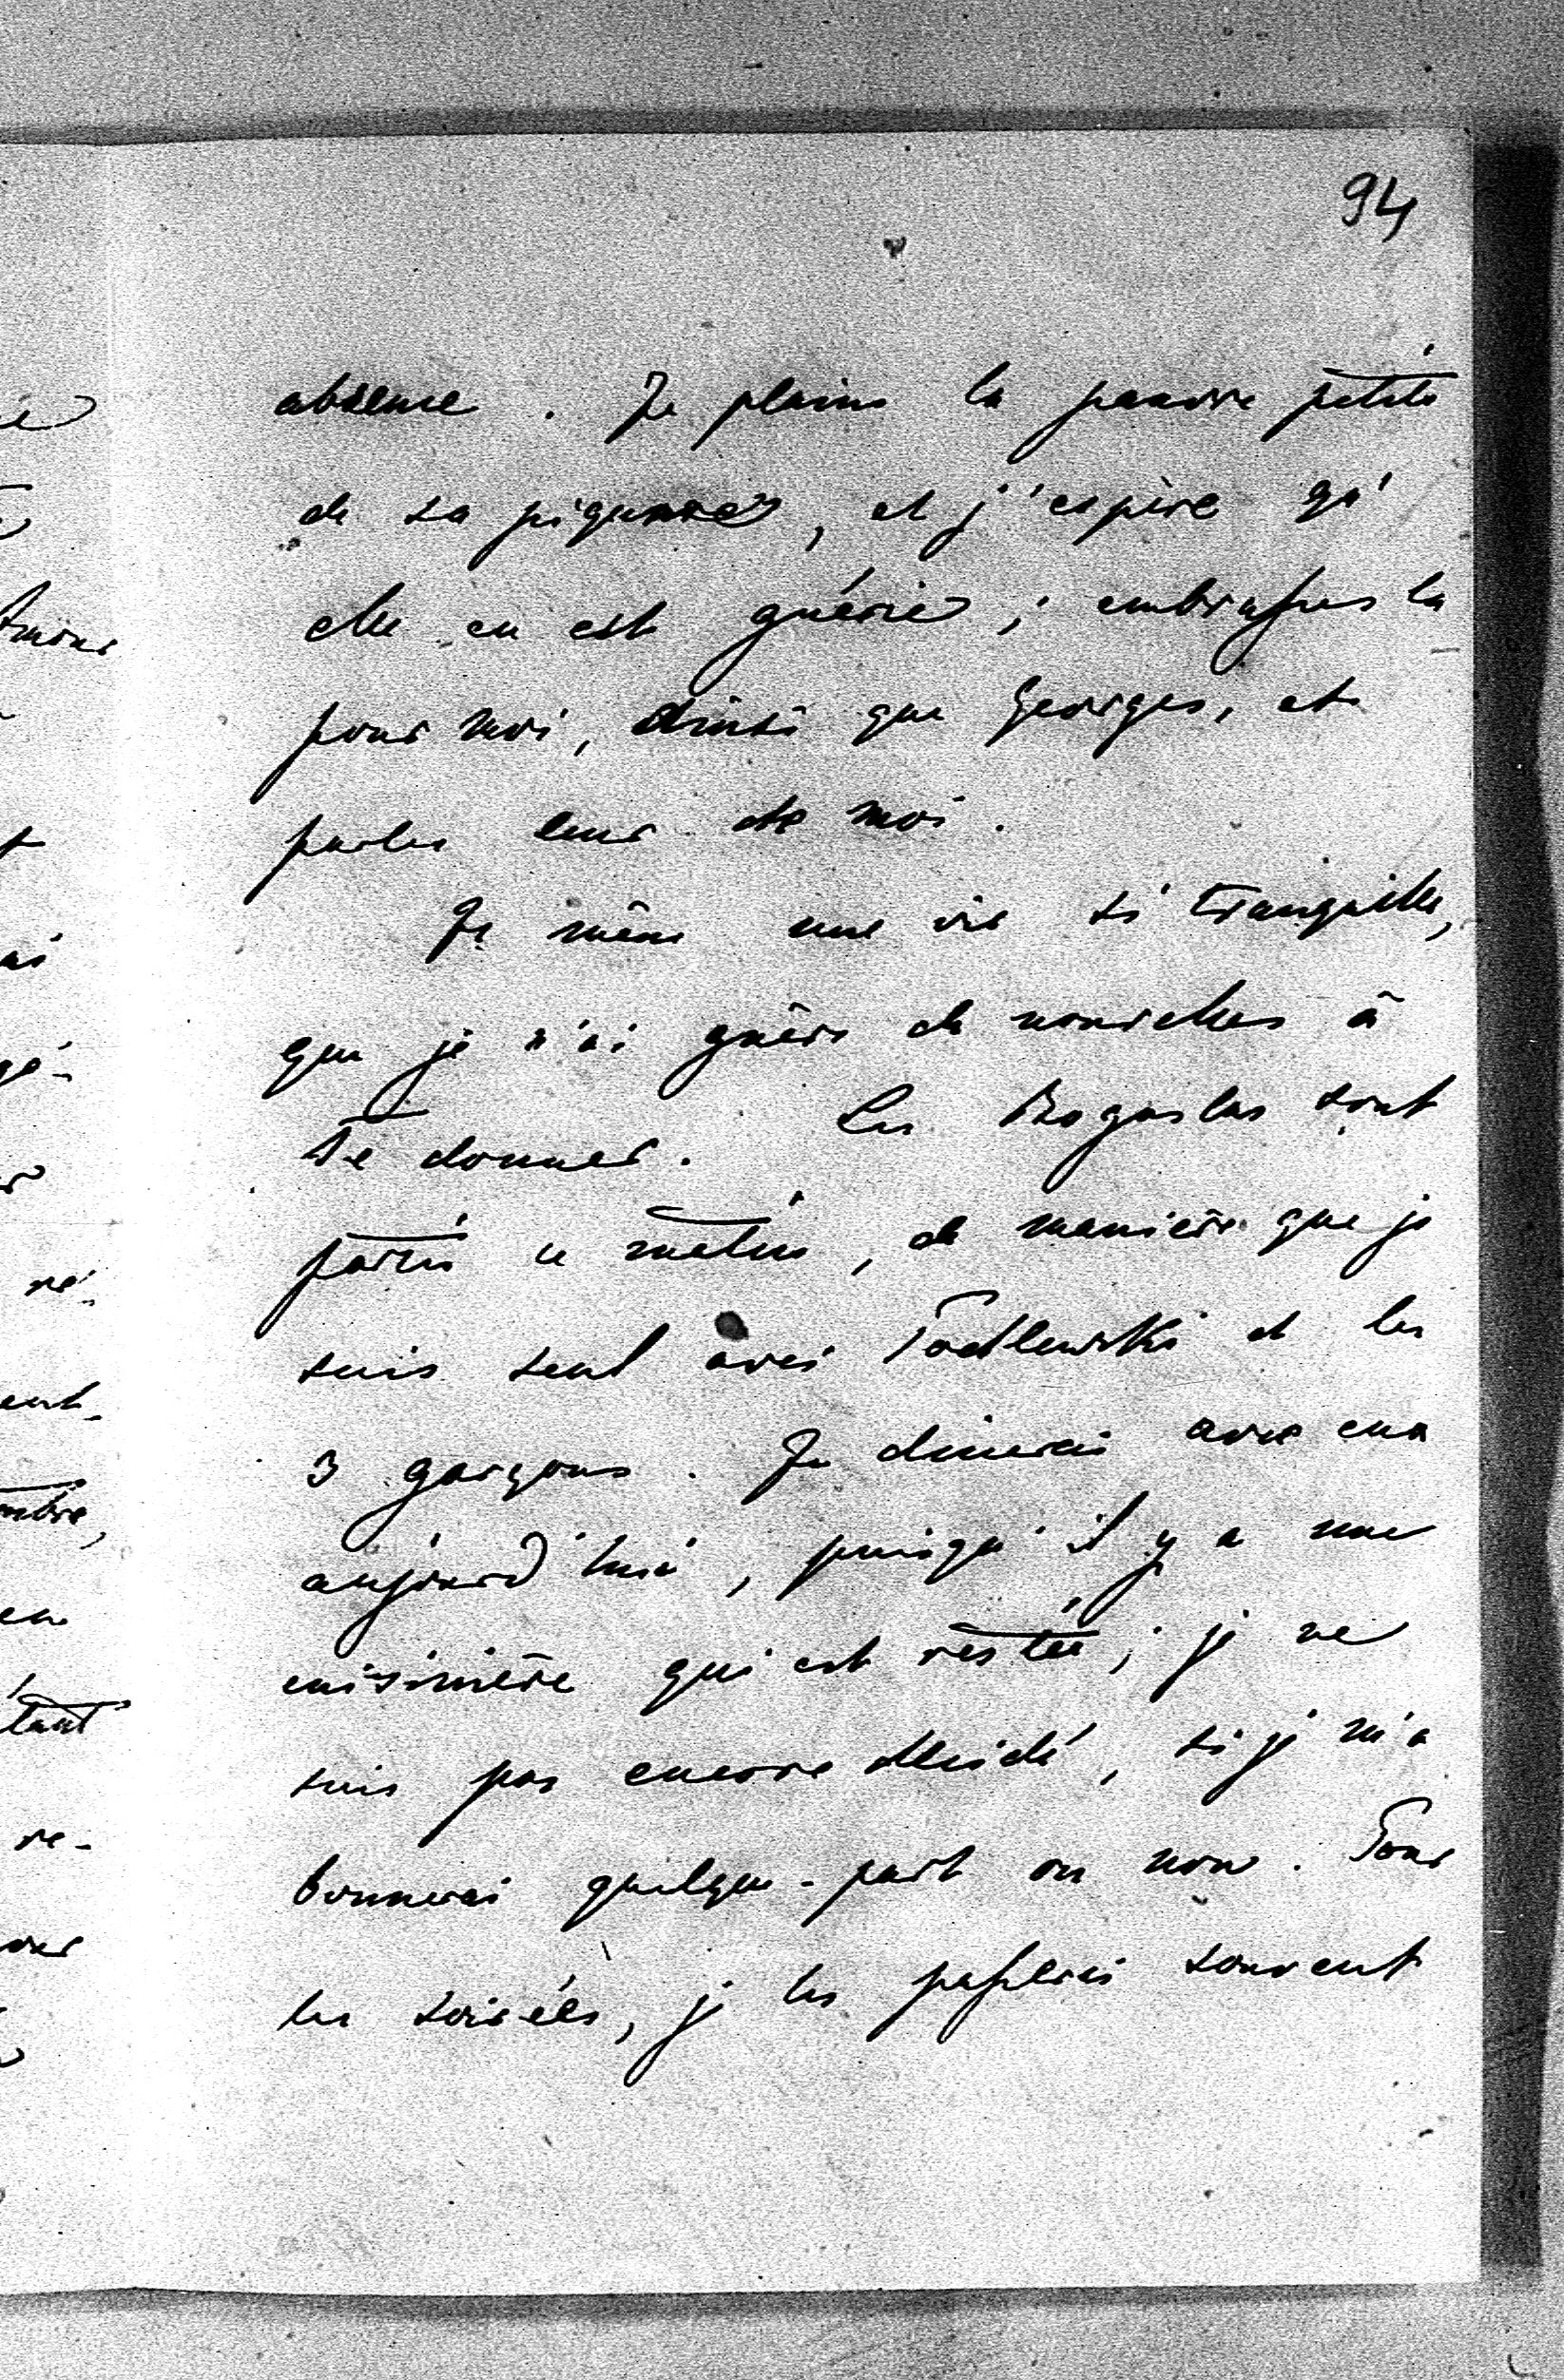 94
absence. Je plains la pauvre petite
de sa piqure, et j'espère qu'
elle en est guérie; embrasses la
pour moi, ainsi que Georges, et
parles leur de moi.
Je mène une vie si tranquille,
que je n'ai guère de nouvelles à
te donner. Les Boguslas sont
partis ce matin, de manière que je
suis seul avec Podlewski et les
3 garçons. Je dinerai avec eux
aujourd'hui, puisqu'il y a une
cuisinière qui est restée; je ne
suis pas encore décidé, si je m'a
bonnerai quelque-part ou non. Pour
les soirées, je les passerai souvent